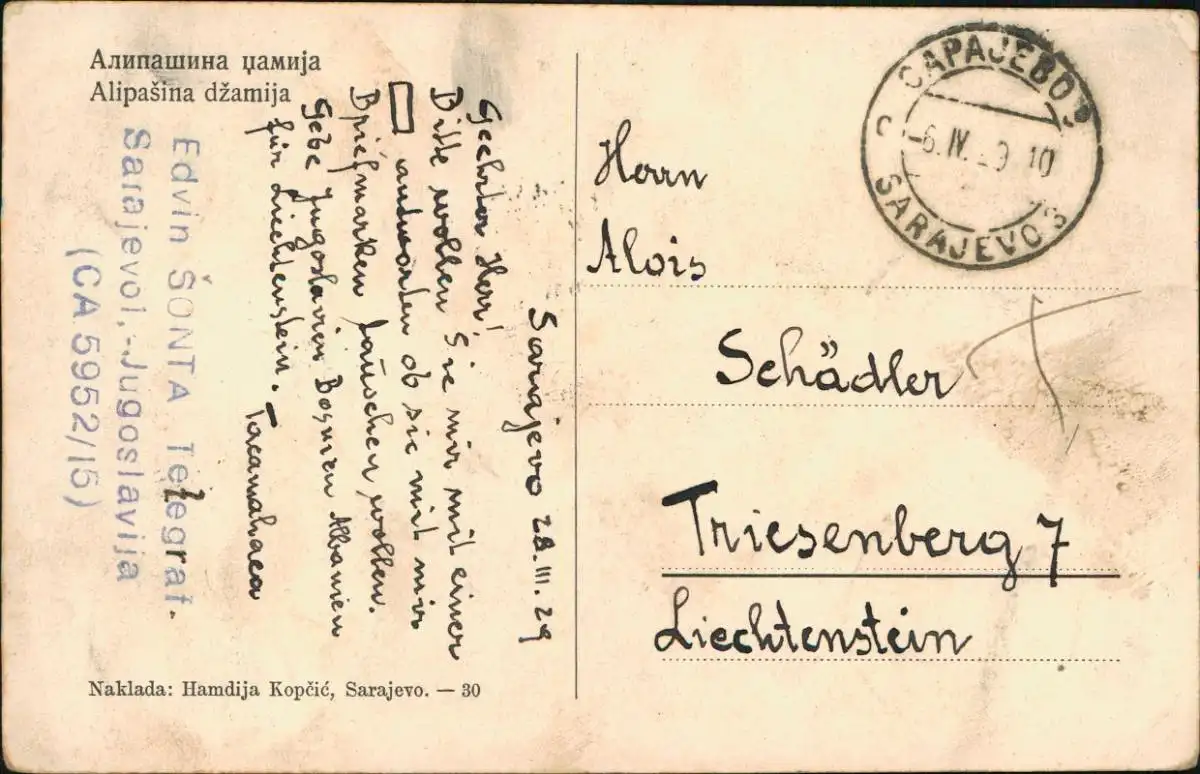 Алипашина џамија
Alipašina džamija
Sarajevo 28.III.29
Geehrter Herr!
Bitte wollen Sie mir mit einer
antworten ob sie mit mir
Briefmarken tauschen wollen.
Gebe Jugoslavien Bosnien Albanien
für Liechtenstein.
Edvin ŠONTA Telegraf.
SarajevoI,-Jugoslavija
(CA 5952/15)
Naklada: Hamdija Kopčić, Sarajevo. — 30
САРАЈЕВО
-6.IV. 29 10
SARAJEVO
Herrn
Alois
Schädler
Triesenberg 7
Liechtenstein
T